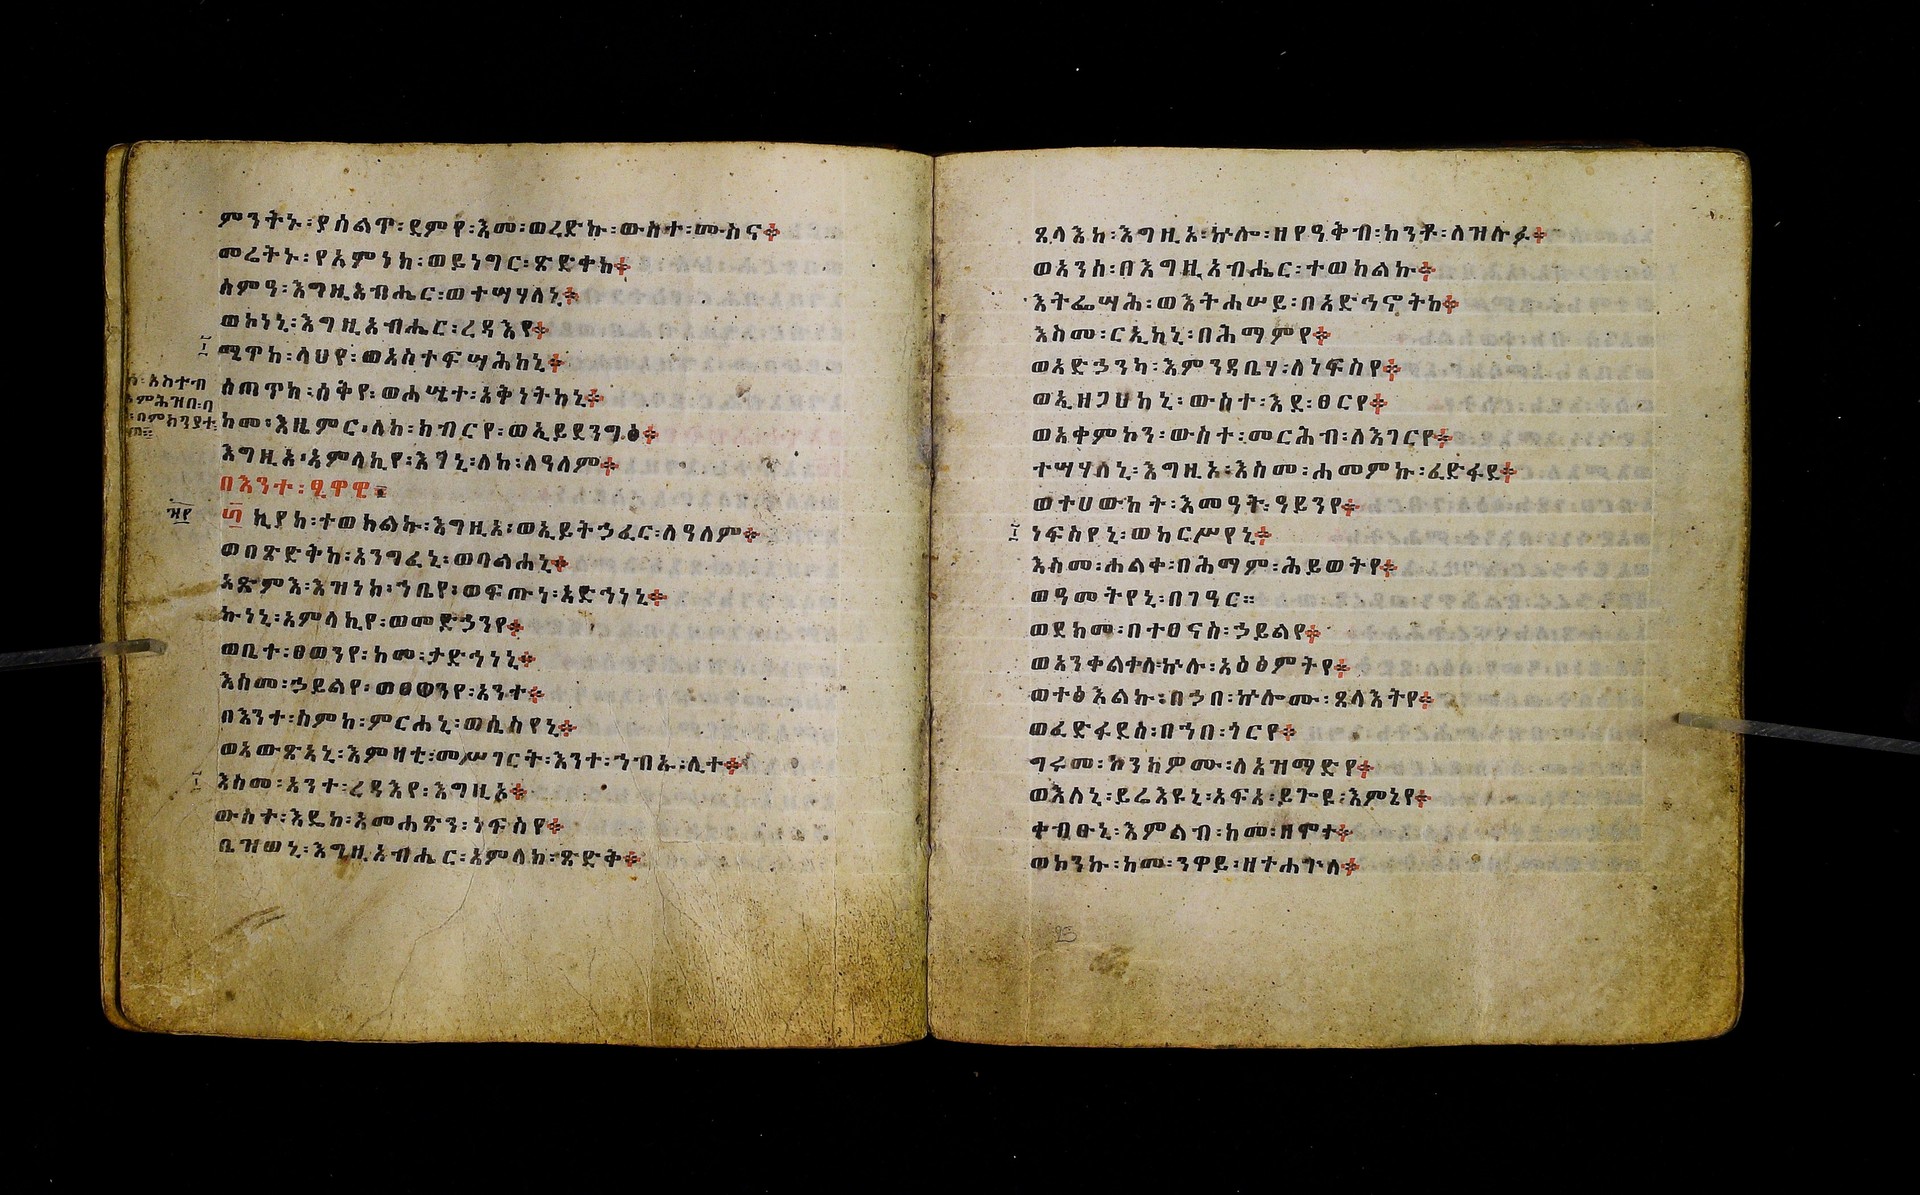 ምንትኑ፡ያሰልጥ፡ደምየ፡እመ፡ወረድኩ፡ውስተ፡ሙስና፨
መሬትኑ፡የአምነከ፡ወይነግር፡ጽድቀከ፨
ሰምዓ፡እግዚአብሔር፡ወተሣሃለኒ፨
ወኮነኒ፡እግዚአብሔር፡ረዳእየ፨
ሜጥከ፡ላህየ፡ወአስተፍሣሕከኒ፨
ሰጠጥከ፡ሰቅየ፡ወሐሤተ፡አቅነትከኒ፨
ከመ፡እዜምር፡ለከ፡ክብርየ፡ወኢይደንግፅ፨
እግዚአ፡አምላኪየ፡እገኒ፡ለከ፡ለዓለም፨
በእንተ፡ፄዋዊ።
፴ ኪያከ፡ተወከልኩ፡እግዚአ፡ወኢይትኃፈር፡ለዓለም፨
ወበጽድቅከ፡አንግፈኒ፡ወባልሐኒ፨
አጽምእ፡እዝነከ፡ኀቤየ፡ወፍጡነ፡አድኅነኒ፨
ኩነኒ፡አምላኪየ፡ወመድኃንየ፨
ወቤተ፡ፀወንየ፡ከመ፡ታድኅነኒ፨
እስመ፡ኃይልየ፡ወፀወንየ፡አንተ፨
በእንተ፡ስምከ፡ምርሐኒ፡ወሴስየኒ፨
ወአውጽአኒ፡እምዛቲ፡መሥገርት፡እንተ፡ኀብኡ፡ሊተ፨
እስመ፡አንተ፡ረዳእየ፡እግዚኦ፨
ውስተ፡እዴከ፡አመሐፅን፡ነፍስየ፨
ቤዝወኒ፡እግዚአብሔር፡አምላከ፡ጽድቅ፨
ጸላእከ፡እግዚአ፡ኵሎ፡ዘየዓቅብ፡ከንቶ፡ለዝሉፉ፨
ወአንሰ፡በእግዚአብሔር፡ተወከልኩ፨
እትፌሣሕ፡ወእትሐሠይ፡በአድኅኖትከ፨
እስመ፡ርኢከኒ፡በሕማምየ፨
ወአድኃንካ፡እምንዳቤሃ፡ለነፍስየ፨
ወኢዘጋህከኒ፡ውስተ፡እደ፡ፀርየ፨
ወአቀምኮን፡ውስተ፡መርሕብ፡ለእገርየ፨
ተሣሃለኒ፡እግዚአ፡እስመ፡ሐመምኩ፡ፈድፋደ፨
ወተሀውከት፡እመዓት፡ዓይንየ፨
ነፍስየኒ፡ወከርሥየኒ፨
እስመ፡ሐልቀ፡በሕማም፡ሕይወትየ፨
ወዓመትየኒ፡በገዓር።
ወደክመ፡በተፀናስ፡ኃይልየ፨
ወአንቀልቀለ፡ኵሉ፡አዕፅምትየ፨
ወተፅእልኩ፡በኃበ፡ኵሎሙ፡ጸላእትየ፨
ወፈድፋደሰ፡በኀበ፡ጎርየ፨
ግሩመ፡ኮንክዎሙ፡ለአዝማድየ፨
ወእለኒ፡ይሬእዩኒ፡አፍአ፡ይጐዩ፡እምኔየ፨
ቀብፁኒ፡እምልብ፡ከመ፡ዘሞተ፨
ወኮንኩ፡ከመ፡ንዋይ፡ዘተሐጕለ፨
23